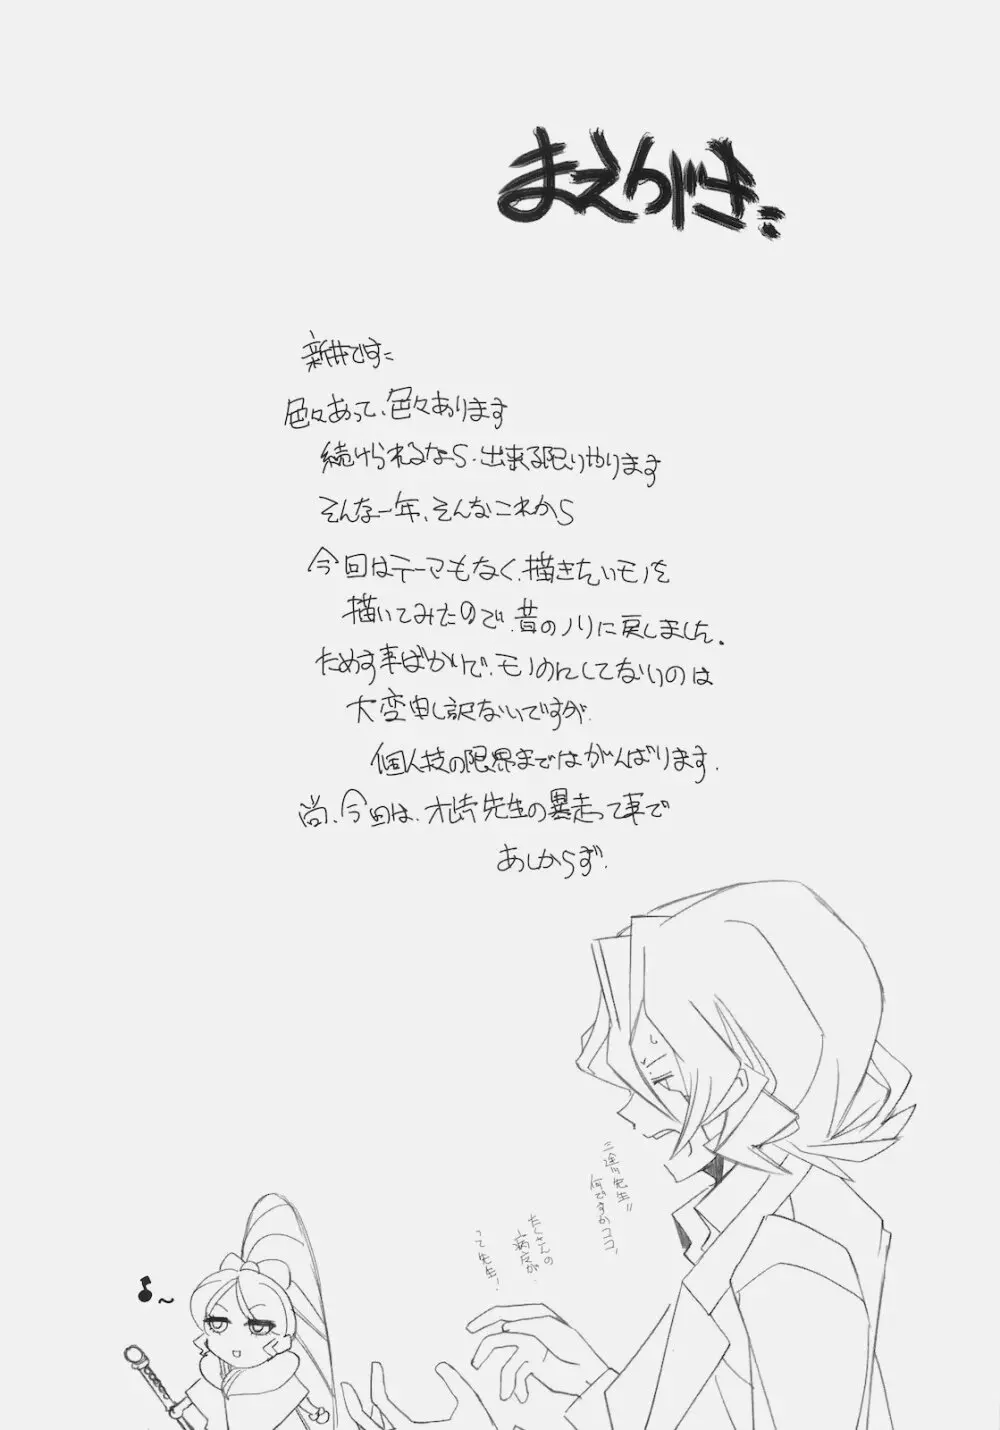 まえがき:
新井です:
色々あって、色々あります
続けられるなら、出来る限りやります
そんな一年、そんなこれから
今回はテーマもなく、描きたいモノを
描いてみたので、昔のノリに戻しました。
ためす事ばかりで、モノにしてないのは
大変申し訳ないですが、
個人技の限界まではがんばります。
尚、今回は、先生の暴走って事で
あしからず。
三途川先生!!
何ですかココ、
たくさんの
病反が、
って先生!